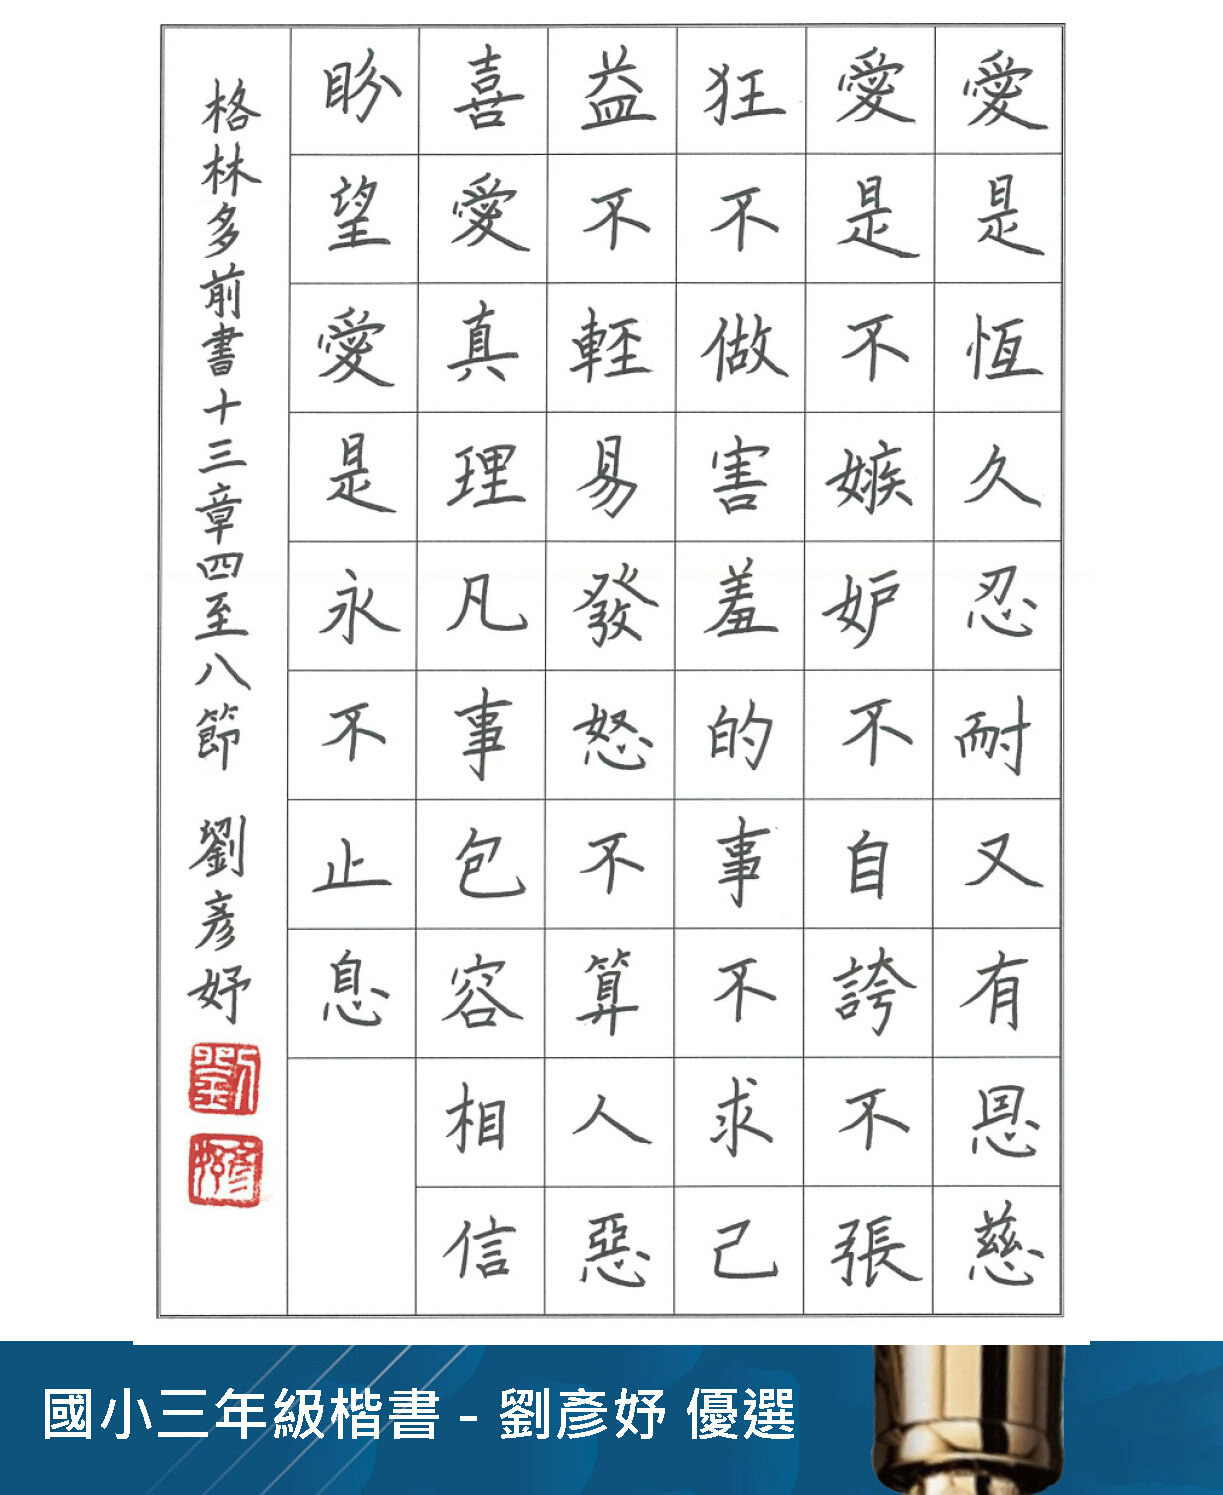 愛是恆久忍耐又有恩慈
愛是不嫉妒不自誇不張
狂不做害羞的事不求己
益不輕易發怒不算人惡
喜愛真理凡事包容相信
盼望愛是永不止息
格林多前書十三章四至八節 劉彥妤
國小三年級楷書 - 劉彥妤 優選